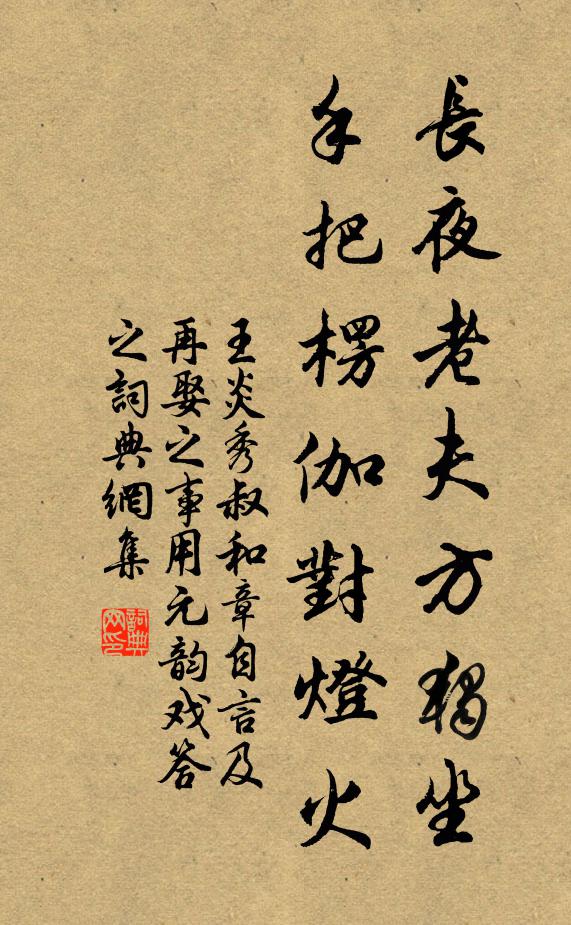 長夜老夫方獨坐
手把楞伽對燈火
王炎秀叔和章自言及
再娶之事用元韵戏答
之詞典網集
詞典
网印